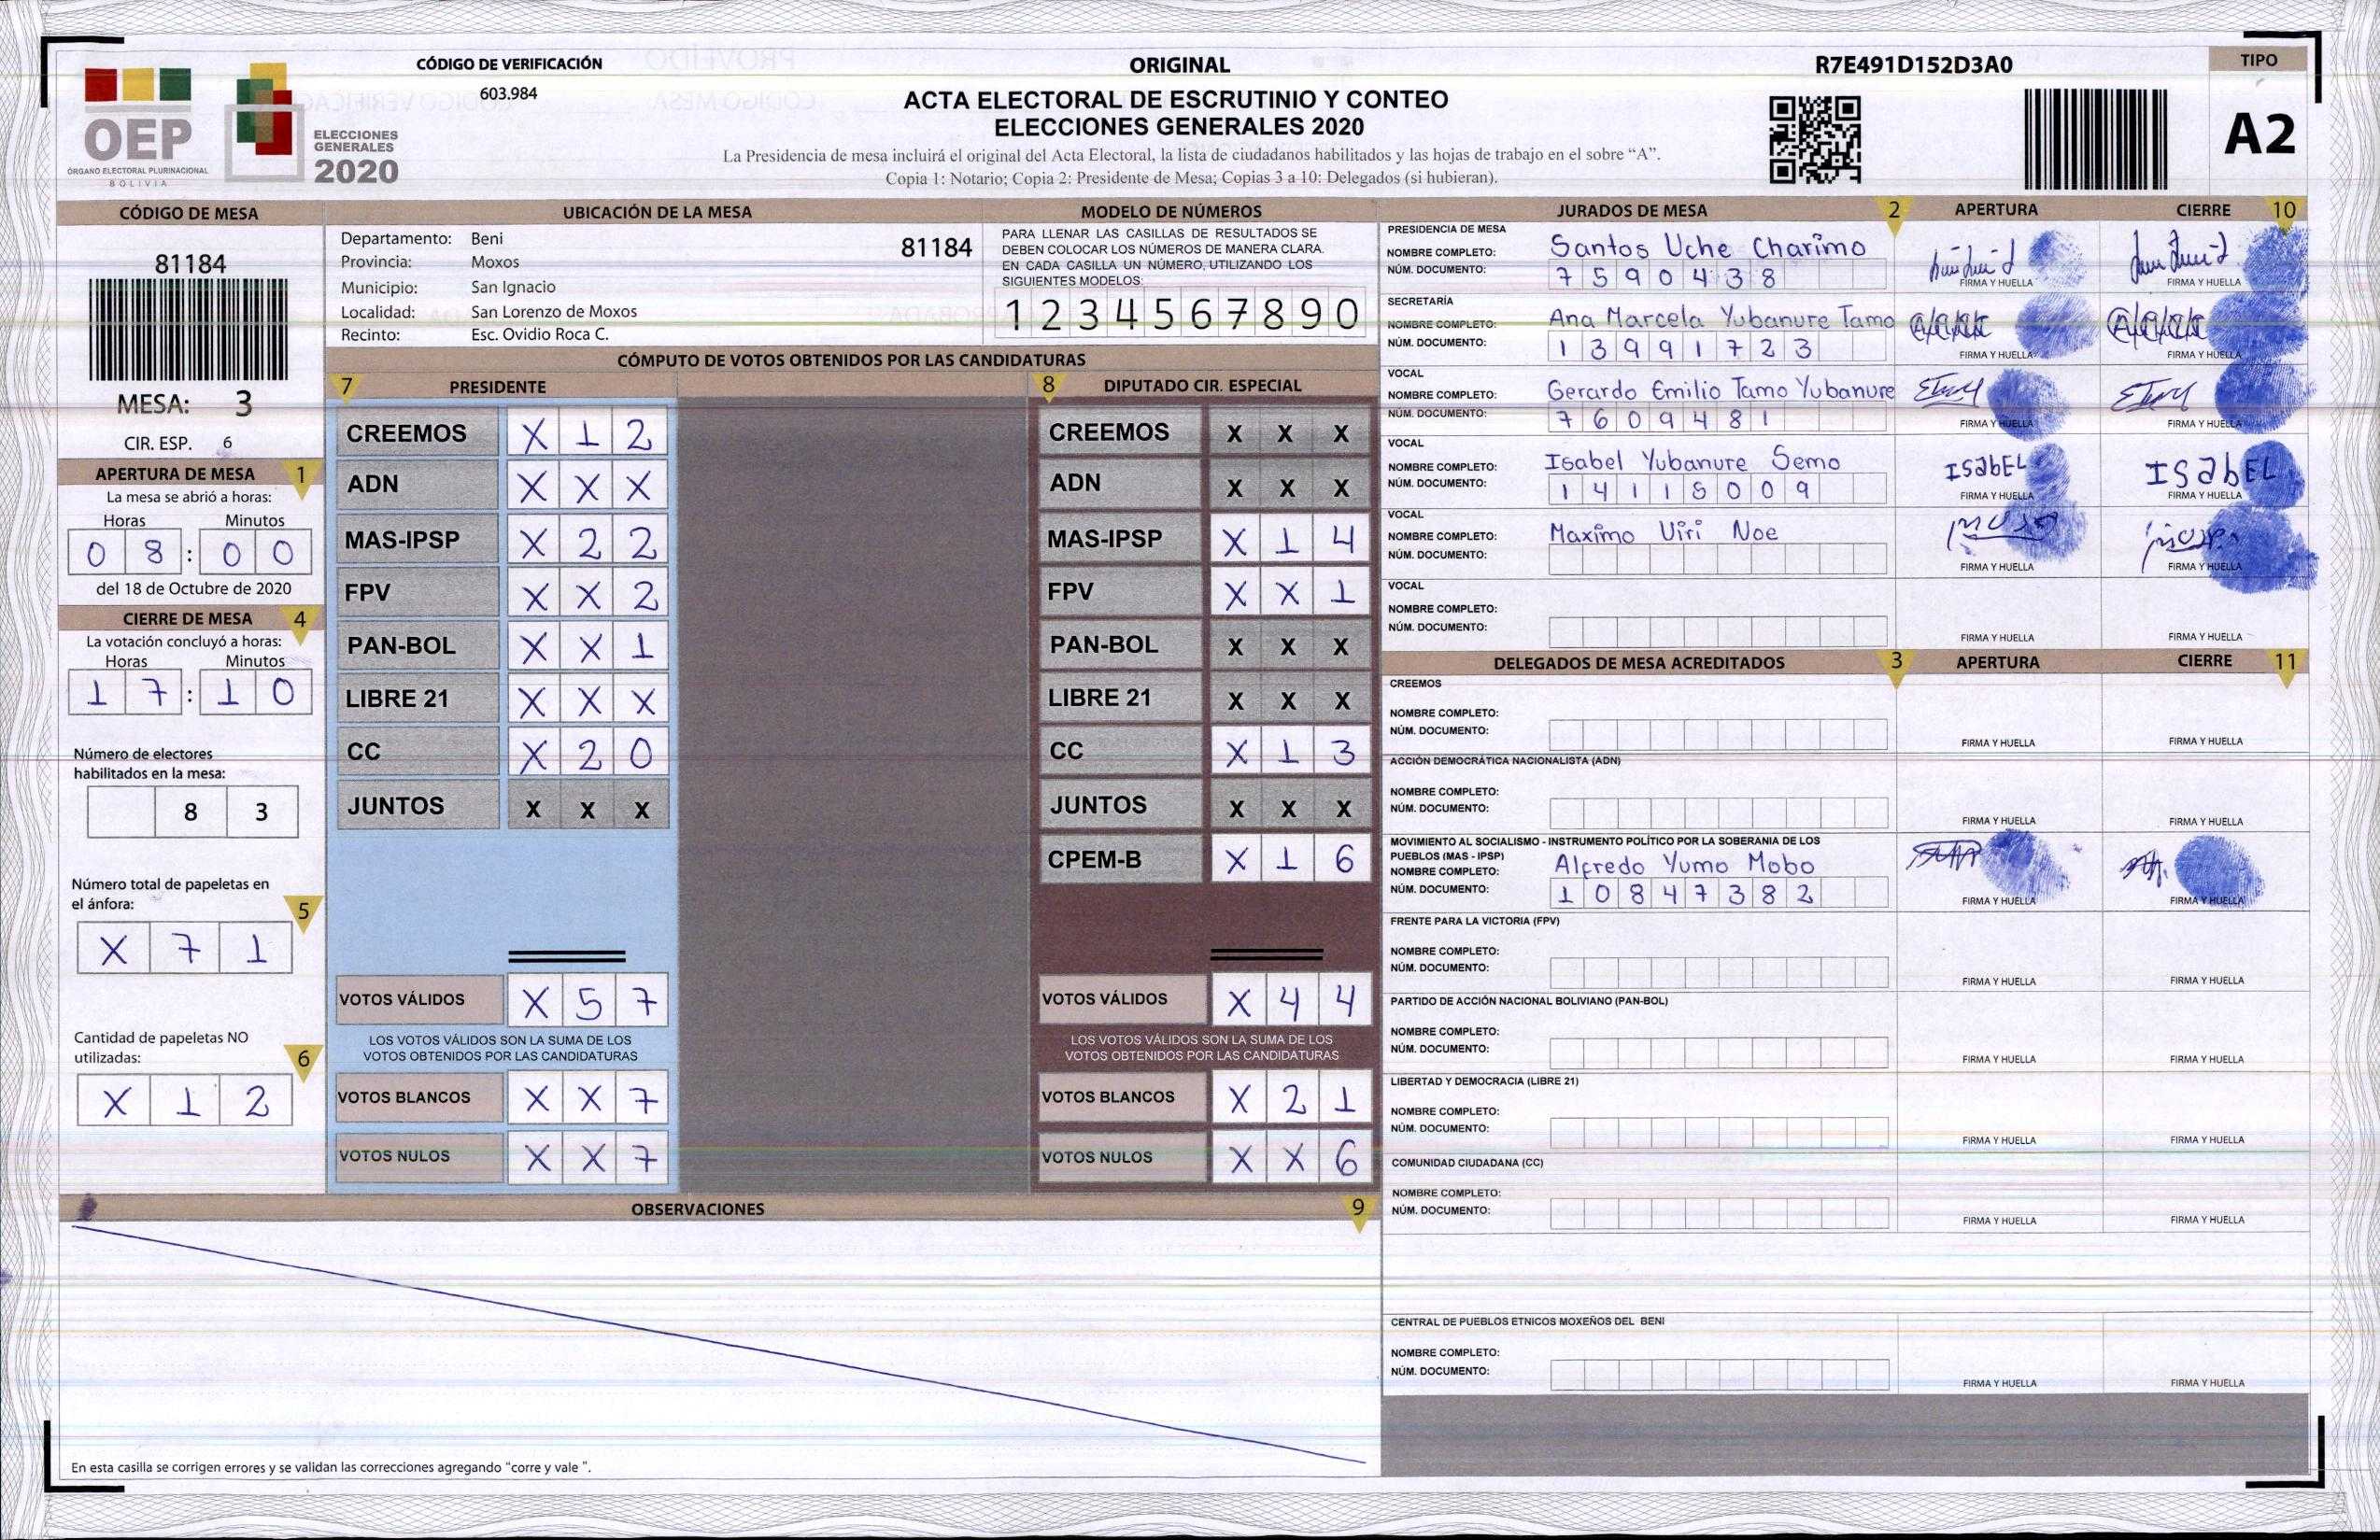 CÓDIGO DE VERIFICACIÓN
603.984
ORIGINAL
ACTA ELECTORAL DE ESCRUTINIO Y CONTEO
ELECCIONES GENERALES 2020
La Presidencia de mesa incluirá el original del Acta Electoral, la lista de ciudadanos habilitados y las hojas de trabajo en el sobre “A”.
Copia 1: Notario; Copia 2: Presidente de Mesa; Copias 3 a 10: Delegados (si hubieran).
R7E491D152D3A0
TIPO
A2
OEP
ÓRGANO ELECTORAL PLURINACIONAL
BOLIVIA
ELECCIONES
GENERALES
2020
CÓDIGO DE MESA
81184
MESA: 3
CIR. ESP. 6
APERTURA DE MESA 1
La mesa se abrió a horas:
Horas Minutos
0 8 : 0 0
del 18 de Octubre de 2020
CIERRE DE MESA 4
La votación concluyó a horas:
Horas Minutos
1 7 : 1 0
Número de electores
habilitados en la mesa:
8 3
Número total de papeletas en
el ánfora: 5
X 7 1
Cantidad de papeletas NO
utilizadas: 6
X 1 2
UBICACIÓN DE LA MESA
Departamento: Beni 81184
Provincia: Moxos
Municipio: San Ignacio
Localidad: San Lorenzo de Moxos
Recinto: Esc. Ovidio Roca C.
MODELO DE NÚMEROS
PARA LLENAR LAS CASILLAS DE RESULTADOS SE
DEBEN COLOCAR LOS NÚMEROS DE MANERA CLARA.
EN CADA CASILLA UN NÚMERO, UTILIZANDO LOS
SIGUIENTES MODELOS:
1 2 3 4 5 6 7 8 9 0
CÓMPUTO DE VOTOS OBTENIDOS POR LAS CANDIDATURAS
7 PRESIDENTE
CREEMOS X 1 2
ADN X X X
MAS-IPSP X 2 2
FPV X X 2
PAN-BOL X X 1
LIBRE 21 X X X
CC X 2 0
JUNTOS X X X
VOTOS VÁLIDOS X 5 7
LOS VOTOS VÁLIDOS SON LA SUMA DE LOS
VOTOS OBTENIDOS POR LAS CANDIDATURAS
VOTOS BLANCOS X X 7
VOTOS NULOS X X 7
8 DIPUTADO CIR. ESPECIAL
CREEMOS X X X
ADN X X X
MAS-IPSP X 1 4
FPV X X 1
PAN-BOL X X X
LIBRE 21 X X X
CC X 1 3
JUNTOS X X X
CPEM-B X 1 6
VOTOS VÁLIDOS X 4 4
LOS VOTOS VÁLIDOS SON LA SUMA DE LOS
VOTOS OBTENIDOS POR LAS CANDIDATURAS
VOTOS BLANCOS X 2 1
VOTOS NULOS X X 6
OBSERVACIONES 9
En esta casilla se corrigen errores y se validan las correcciones agregando "corre y vale ".
JURADOS DE MESA 2 APERTURA CIERRE 10
PRESIDENCIA DE MESA
NOMBRE COMPLETO: Santos Uche Charimo
NÚM. DOCUMENTO: 7 5 9 0 4 3 8
FIRMA Y HUELLA FIRMA Y HUELLA
SECRETARÍA
NOMBRE COMPLETO: Ana Marcela Yubanure Tamo
NÚM. DOCUMENTO: 1 3 9 9 1 7 2 3
FIRMA Y HUELLA FIRMA Y HUELLA
VOCAL
NOMBRE COMPLETO: Gerardo Emilio Tamo Yubanure
NÚM. DOCUMENTO: 7 6 0 9 4 8 1
FIRMA Y HUELLA FIRMA Y HUELLA
VOCAL
NOMBRE COMPLETO: Isabel Yubanure Semo
NÚM. DOCUMENTO: 1 4 1 1 5 0 0 9
ISabEL ISabEL
FIRMA Y HUELLA FIRMA Y HUELLA
VOCAL
NOMBRE COMPLETO: Maximo Uiri Noe
NÚM. DOCUMENTO:
FIRMA Y HUELLA FIRMA Y HUELLA
VOCAL
NOMBRE COMPLETO:
NÚM. DOCUMENTO:
FIRMA Y HUELLA FIRMA Y HUELLA
DELEGADOS DE MESA ACREDITADOS 3 APERTURA CIERRE 11
CREEMOS
NOMBRE COMPLETO:
NÚM. DOCUMENTO:
FIRMA Y HUELLA FIRMA Y HUELLA
ACCIÓN DEMOCRÁTICA NACIONALISTA (ADN)
NOMBRE COMPLETO:
NÚM. DOCUMENTO:
FIRMA Y HUELLA FIRMA Y HUELLA
MOVIMIENTO AL SOCIALISMO - INSTRUMENTO POLÍTICO POR LA SOBERANIA DE LOS
PUEBLOS (MAS - IPSP)
NOMBRE COMPLETO: Alfredo Yumo Mobo
NÚM. DOCUMENTO: 1 0 8 4 7 3 8 2
FIRMA Y HUELLA FIRMA Y HUELLA
FRENTE PARA LA VICTORIA (FPV)
NOMBRE COMPLETO:
NÚM. DOCUMENTO:
FIRMA Y HUELLA FIRMA Y HUELLA
PARTIDO DE ACCIÓN NACIONAL BOLIVIANO (PAN-BOL)
NOMBRE COMPLETO:
NÚM. DOCUMENTO:
FIRMA Y HUELLA FIRMA Y HUELLA
LIBERTAD Y DEMOCRACIA (LIBRE 21)
NOMBRE COMPLETO:
NÚM. DOCUMENTO:
FIRMA Y HUELLA FIRMA Y HUELLA
COMUNIDAD CIUDADANA (CC)
NOMBRE COMPLETO:
NÚM. DOCUMENTO:
FIRMA Y HUELLA FIRMA Y HUELLA
CENTRAL DE PUEBLOS ETNICOS MOXEÑOS DEL BENI
NOMBRE COMPLETO:
NÚM. DOCUMENTO:
FIRMA Y HUELLA FIRMA Y HUELLA